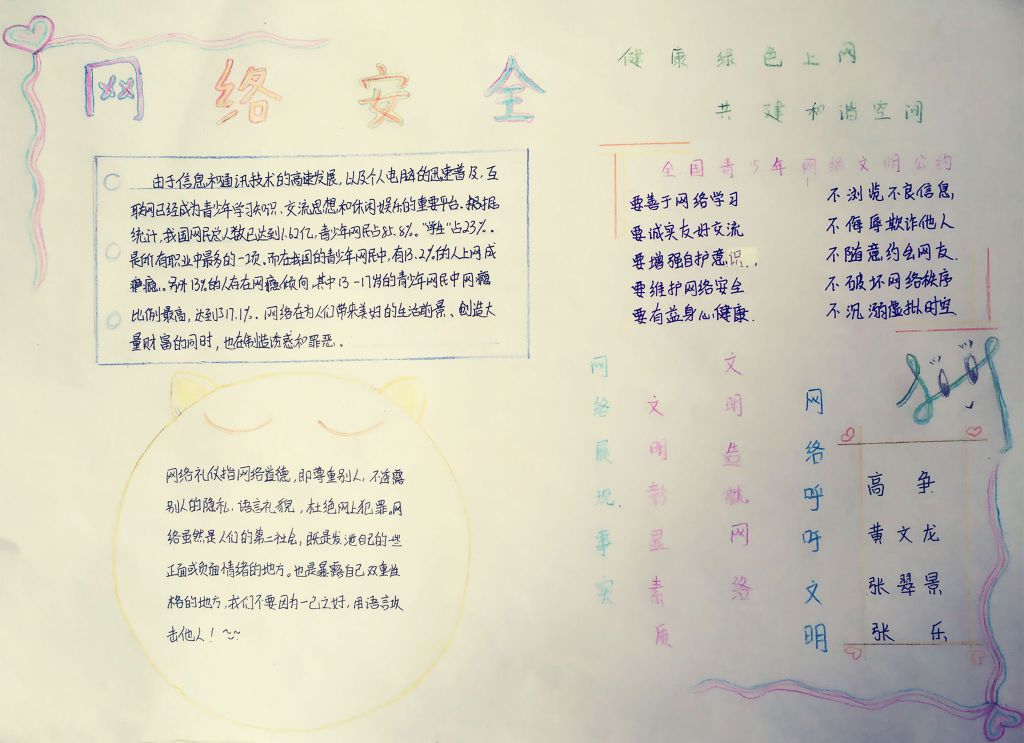 网络安全
由于信息和通讯技术的高速发展,以及个人电脑的迅速普及,互
联网已经成为青少年学习知识、交流思想和休闲娱乐的重要平台。根据
统计,我国网民总人数已达到1.62亿,青少年网民占85.8%。"学生"占23%。
是所有职业中最多的一项。而在我国的青少年网民中,有13.2%的人上网成
瘾。另外13%的人存在网瘾倾向,其中13-17岁的青少年网民中网瘾
比例最高,达到17.1%.。网络在为人们带来美好的生活前景、创造大
量财富的同时,也在制造诱惑和罪恶。
网络礼仪指网络道德,即尊重别人,不透露
别人的隐私,语言礼貌,杜绝网上犯罪。网
络虽然是人们的第二社会,既是发泄自己的一些
正面或负面情绪的地方。也是暴露自己双重性
格的地方,我们不要因为一己之好,用语言攻
击他人!~~
健康绿色上网
共建和谐空间
全国青少年网络文明公约
要善于网络学习 不浏览不良信息,
要诚实友好交流 不侮辱欺诈他人
要增强自护意识.. 不随意约会网友.
要维护网络安全 不破坏网络秩序
要有益身心健康. 不沉溺虚拟时空
网络展现事实
文明彰显素质
文明造就网络
网络呼吁文明
高争
黄文龙
张翠景
张乐